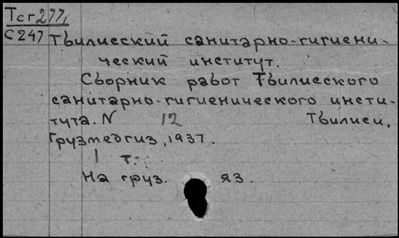 Тсг277,
С247 Тбилисский санитарно-гигиени-
ческий институт.
Сборник работ Тбилисского
санитарно-гигиенического инсти-
тута. N 12 Тбилиси,
Грузмедгиз, 1937.
1 т.
На груз. яз.